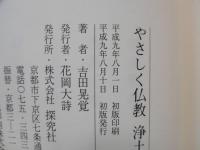 やさしく仏教 浄土
平成九年八月一日 初版印刷
平成九年八月十日 初版発行
著者・吉田晃覚
発行者・花岡大詩
発行所・株式会社 探究社
京都市下京区七条通
電話〇七五・三四三
振替・京都三-二